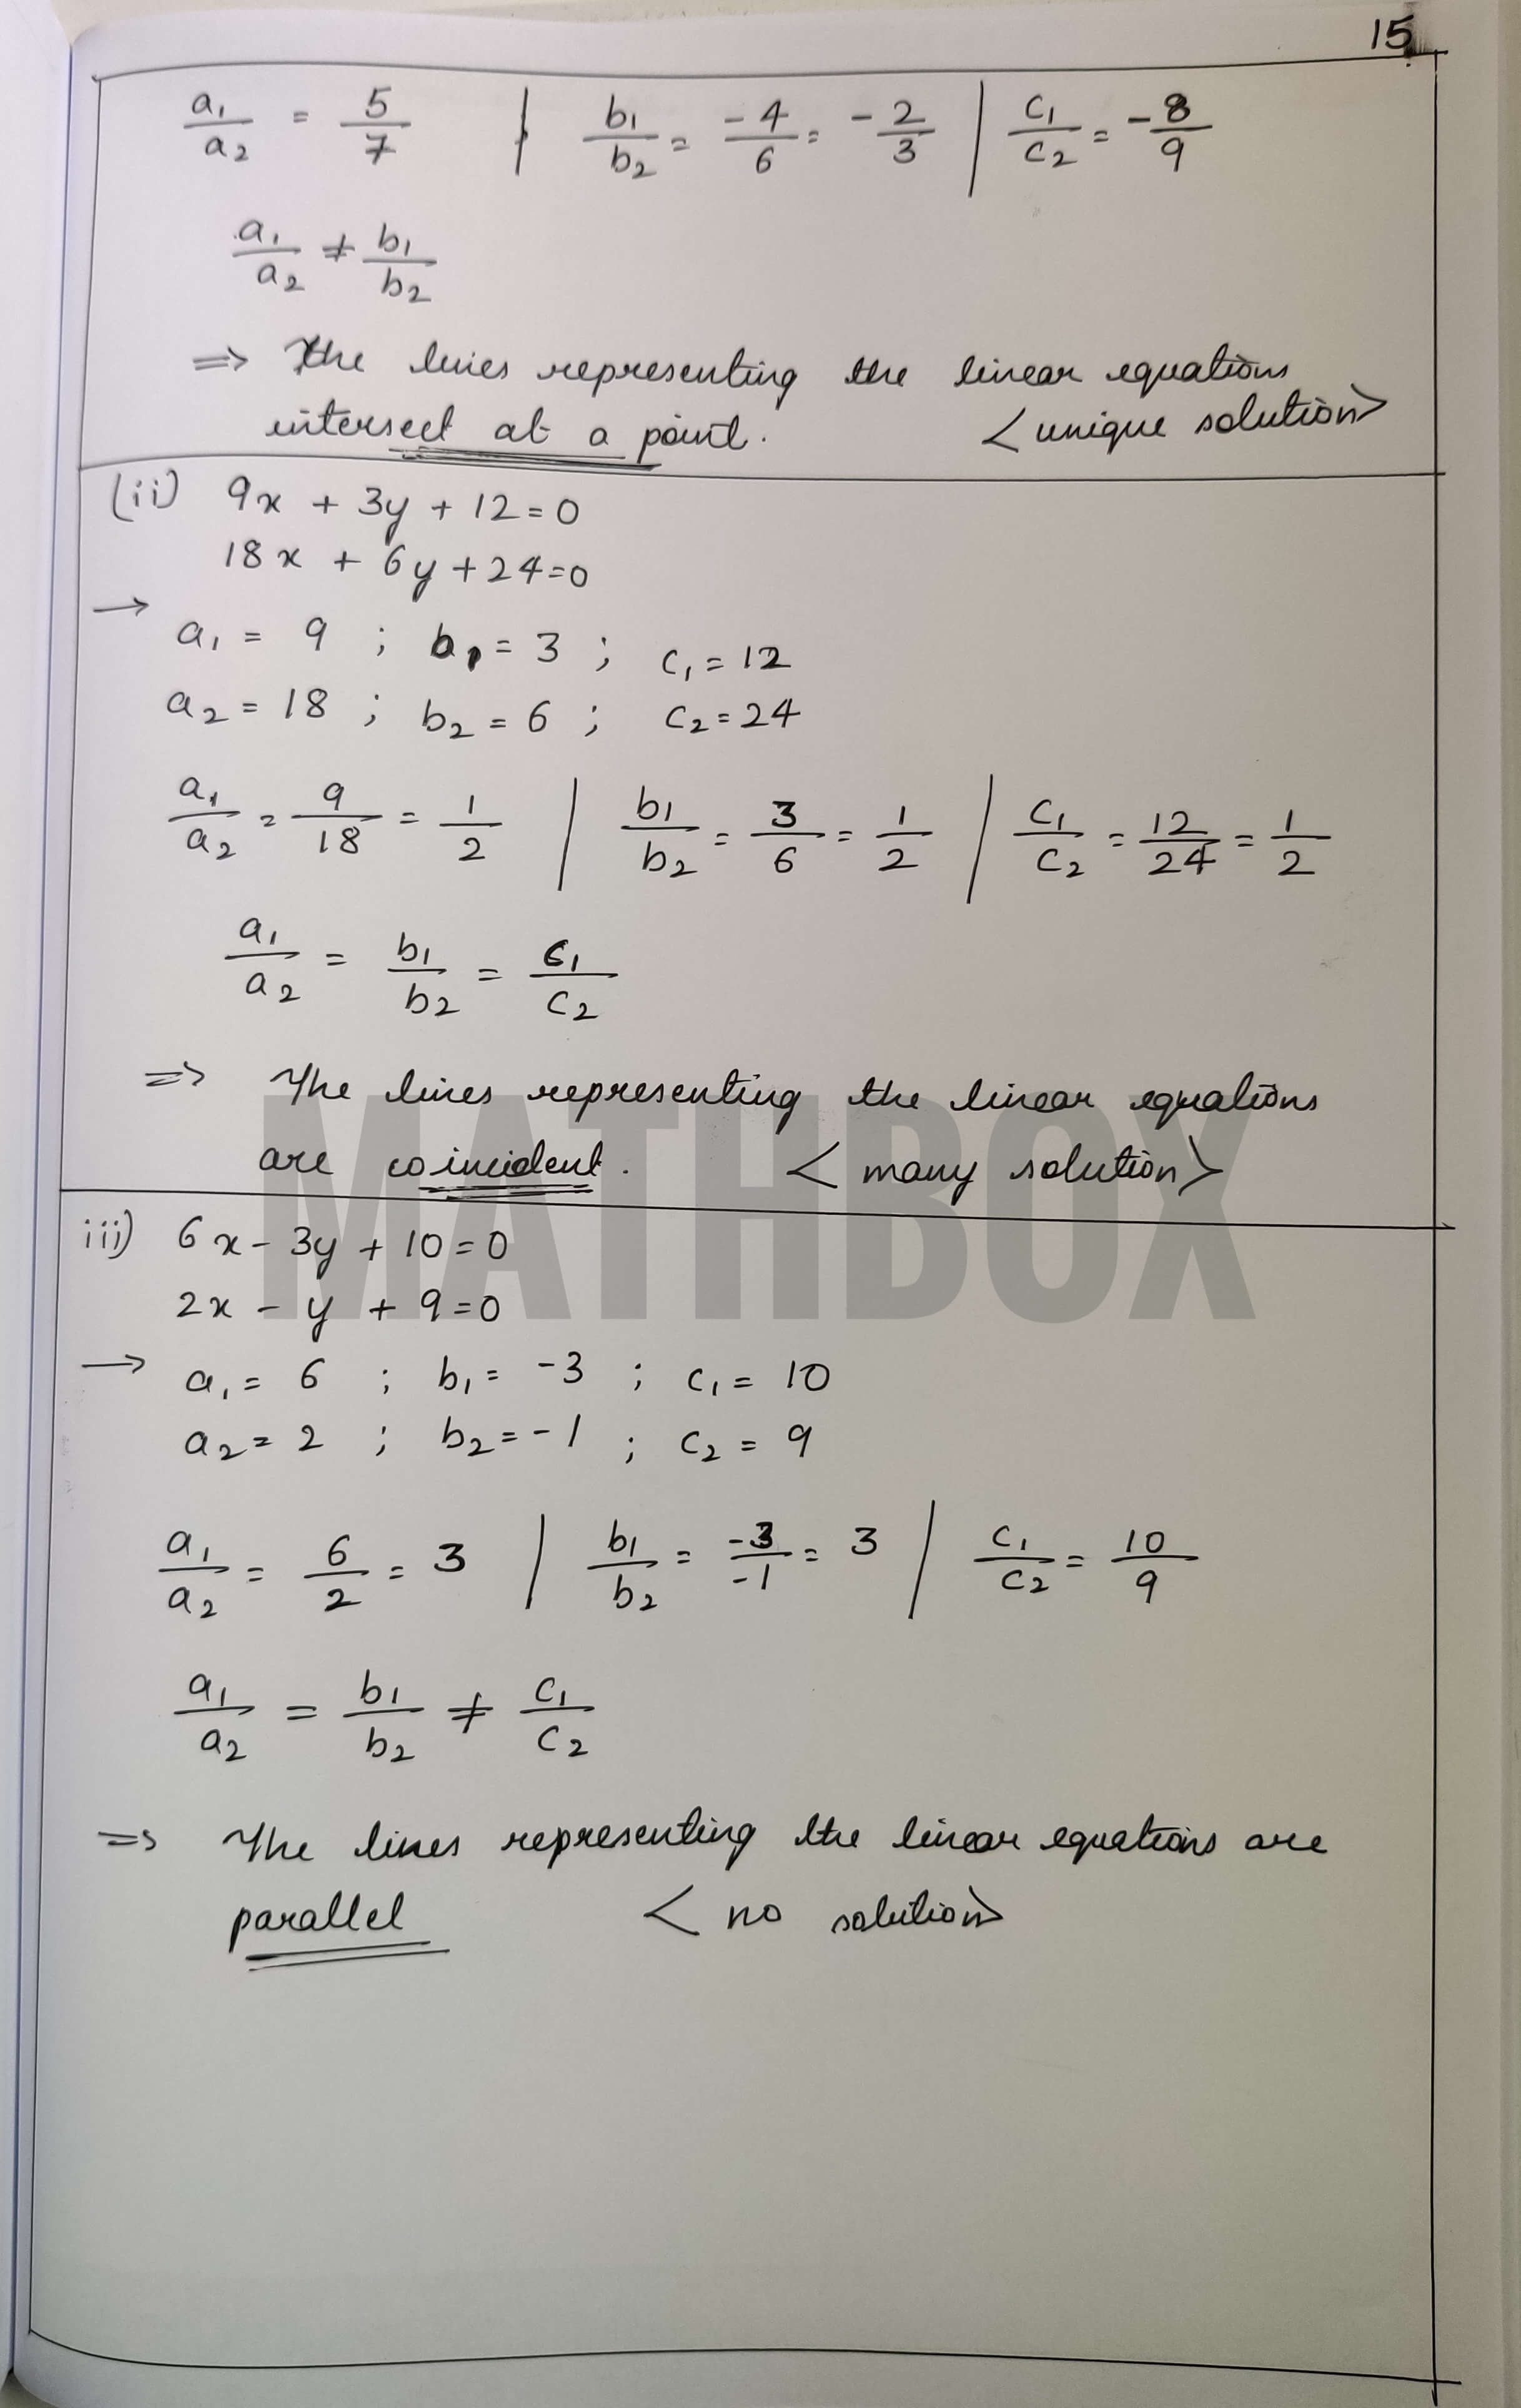 15
a₁/a₂ = 5/7 | b₁/b₂ = -4/6 = -2/3 | c₁/c₂ = -8/9
a₁/a₂ ≠ b₁/b₂
⇒ The lines representing the linear equations
intersect at a point. <unique solution>
(ii) 9x + 3y + 12 = 0
18x + 6y + 24 = 0
→ a₁ = 9 ; b₁ = 3 ; c₁ = 12
a₂ = 18 ; b₂ = 6 ; c₂ = 24
a₁/a₂ = 9/18 = 1/2 | b₁/b₂ = 3/6 = 1/2 | c₁/c₂ = 12/24 = 1/2
a₁/a₂ = b₁/b₂ = c₁/c₂
⇒ The lines representing the linear equations
are coincident. <many solution>
MATHBOX
iii) 6x - 3y + 10 = 0
2x - y + 9 = 0
→ a₁ = 6 ; b₁ = -3 ; c₁ = 10
a₂ = 2 ; b₂ = -1 ; c₂ = 9
a₁/a₂ = 6/2 = 3 | b₁/b₂ = -3/-1 = 3 | c₁/c₂ = 10/9
a₁/a₂ = b₁/b₂ ≠ c₁/c₂
⇒ The lines representing the linear equations are
parallel <no solution>